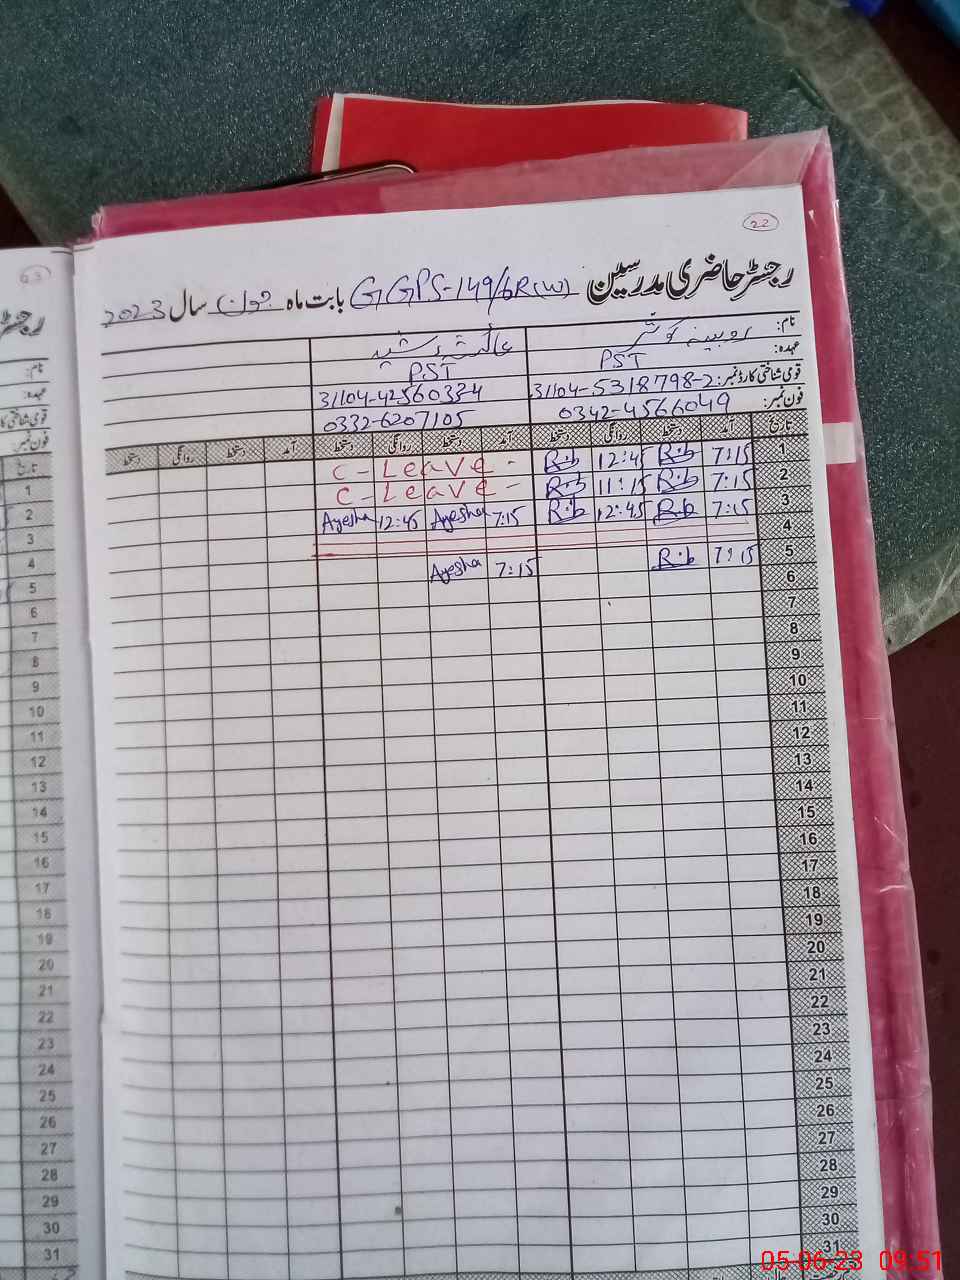 22
رجسٹر حاضری مدرسین GGPS-149/6R(W) بابت ماہ جون سال 2023
نام: روبینہ کوثر عائشہ رشید
عہدہ: PST PST
قومی شناختی کارڈ نمبر: 31104-5318798-2 31104-42560334
فون نمبر: 0342-4566049 0332-6207105
تاریخ آمد دستخط روانگی دستخط آمد دستخط روانگی دستخط آمد دستخط روانگی دستخط
1 7:15 R.b 12:45 R.b C - Leave -
2 7:15 R.b 11:15 R.b C - Leave -
3 7:15 R.b 12:45 R.b 7:15 Ayesha 12:45 Ayesha
4
5 7:15 R.b 7:15 Ayesha
6
7
8
9
10
11
12
13
14
15
16
17
18
19
20
21
22
23
24
25
26
27
28
29
30
31
نام:
عہدہ:
قومی شناختی کا
فون نمبر:
تاریخ
1
2
3
4
5
6
7
8
9
10
11
12
13
14
15
16
17
18
19
20
21
22
23
24
25
26
27
28
29
30
31
05-06-23 09:51